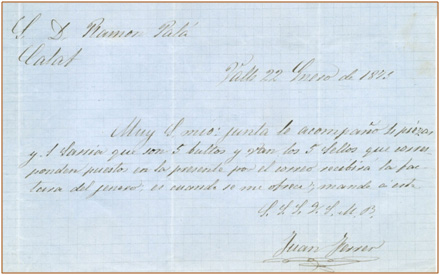 S. D. Ramon Palá
Calaf
Valls 22 Enero de 1875
Muy S. mio: junto le acompaño 4 piezas
y 1 Sarria que son 5 bultos y van los 5 sellos que corres
ponden puestos en la presente por el correo recibirá la fac
tura del genero, es cuando se me ofrece y mande á este
S. S. S. Q. S. M. B.
Juan Ferrer